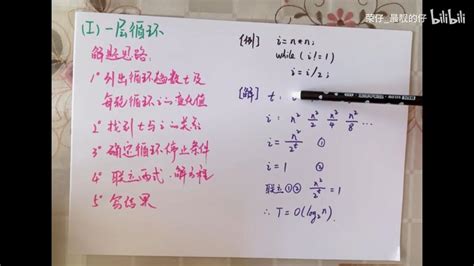 荣仔_最靓的仔 bilibili
(I) 一层循环
解题思路:
1° 列出循环趟数t及
每轮循环i的变化值
2° 找到t与i的关系
3° 确定循环停止条件
4° 联立两式,解方程
5° 写结果
[例] i=n*n;
while (i!=1)
i=i/2;
[解] t:
i: n² n²/2 n²/4 n²/8 ...
i=n²/2^t ①
i=1 ②
联立①② n²/2^t=1
∴ T=O(log₂n).